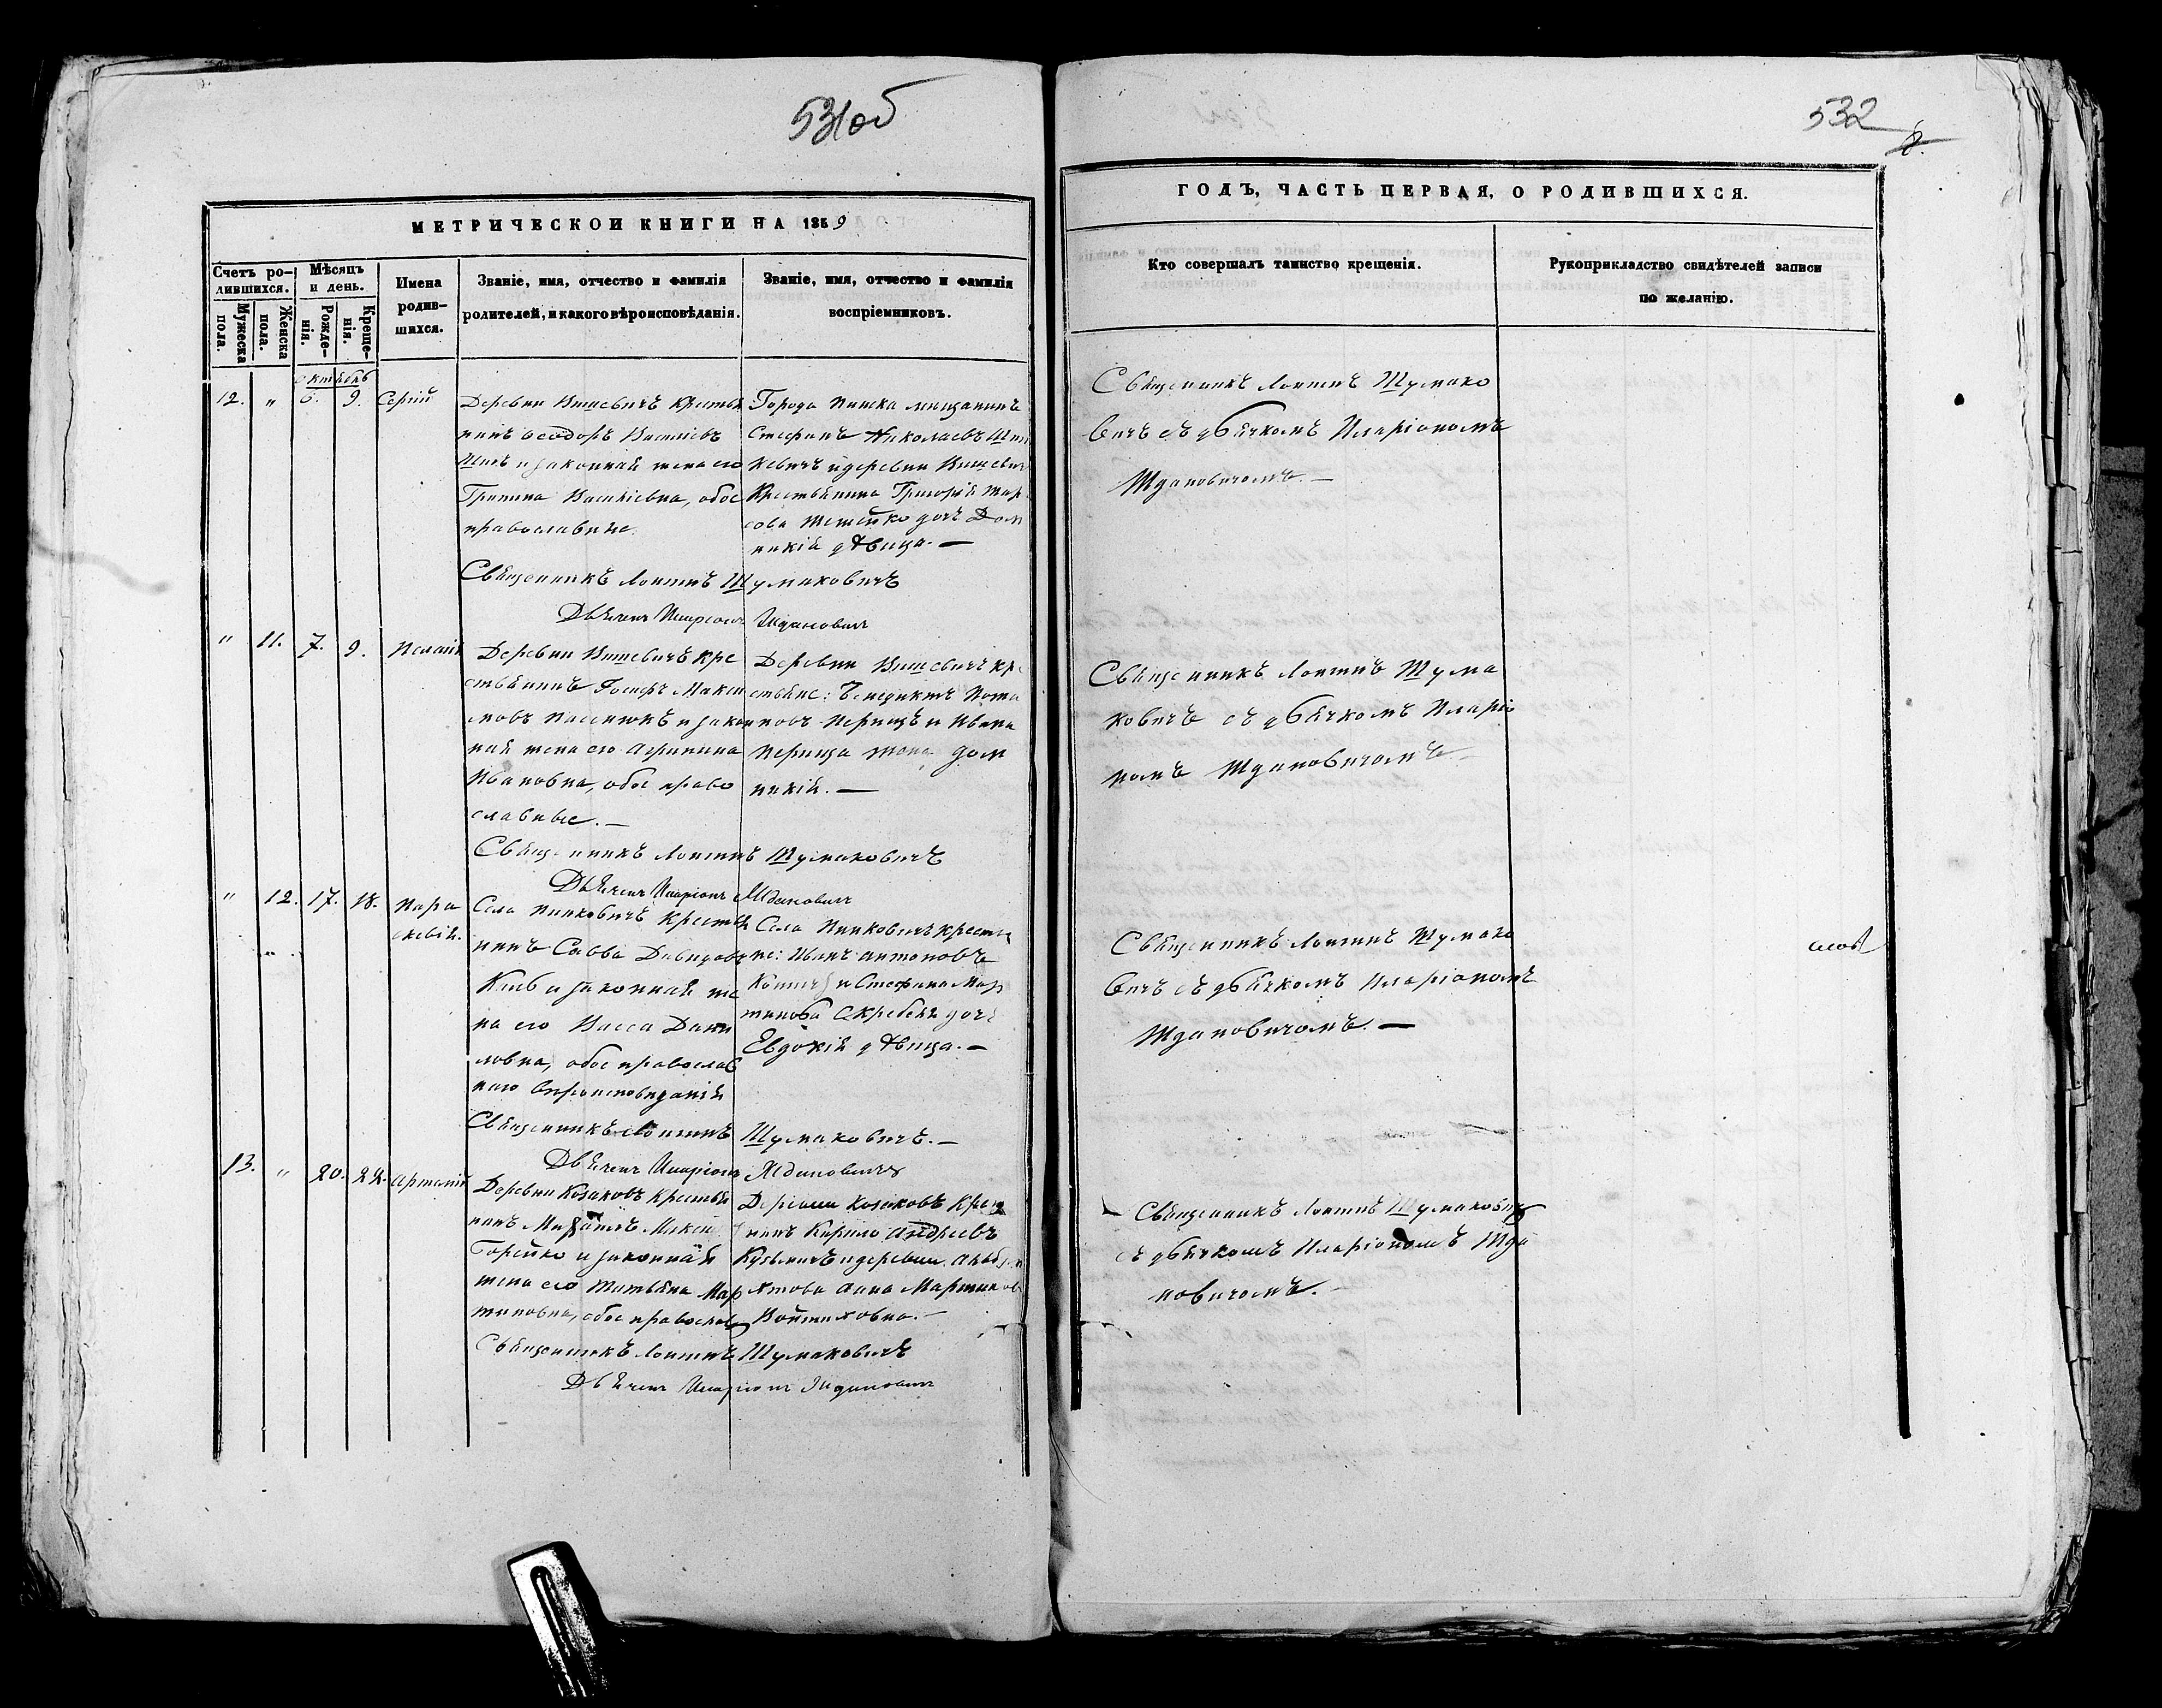 531об
МЕТРИЧЕСКОЙ КНИГИ НА 1859
Счетъ ро-
дившихся.
Мужеска
пола.
Женска
пола.
Мѣсяцъ
и день.
Рожде-
нія.
Креще-
нія.
Имена
родив-
шихся.
Званіе, имя, отчество и фамилія
родителей, и какого вѣроисповѣданія.
Званіе, имя, отчество и фамилія
воспріемниковъ.
октябрь
12. " 6. 9. Сергій
Деревни Вишевичъ крестья
нинъ Ѳеодоръ Василіевъ
и законная жена его
Василіевна, обое
православные.
Города Пинска мещанинъ
Стефанъ Николаевъ
кевичъ и деревни Вишевич
крестьянина Григорія
дочь Дом
никія дѣвица. —
Священникъ Лонгинъ Шумаковичъ
Дьячекъ Иларіонъ Ждановичъ
" 11. 7. 9. Пелагія
Деревни Вишевичъ кре
стьянинъ Іосифъ Макси
мовъ и закон
ная жена его Агрипина
Ивановна, обое право
славные. —
Деревни Вишевичъ кре
стьяне: Бенедиктъ Пота
повъ и Ивана
жена Дом
никія. —
Священникъ Лонгинъ Шумаковичъ
Дьячекъ Иларіонъ Ждановичъ
" 12. 17. 18. Пара
скевія.
Села Пинковичъ крестья
нинъ Савва Давидовъ
и законная же
на его Васса Дани
ловна, обое православ
наго вѣроисповѣданія
Села Пинковичъ крестья
не: Иванъ Антоновъ
и Стефана Мар
тинова дочь
Евдокія дѣвица. —
Священникъ Лонгинъ Шумаковичъ. —
Дьячекъ Иларіонъ Ждановичъ
13. " 20. 24. Артемій
Деревни Козаковъ крестья
нинъ Михаилъ
Горейко и законная
жена его Татьяна Мар
тиновна, обое православ
Деревни Козаковъ
нинъ Кирило Андреевъ
Кузьмичъ и деревни
Анна Мартинов
Войтиховна. —
Священникъ Лонгинъ Шумаковичъ
Дьячекъ Иларіонъ Ждановичъ
532
ГОДЪ, ЧАСТЬ ПЕРВАЯ, О РОДИВШИХСЯ.
Кто совершалъ таинство крещенія.
Рукоприкладство свидѣтелей записи
по желанію.
Священникъ Лонгинъ Шумако
вичъ съ дьячкомъ Иларіономъ
Ждановичомъ. —
Священникъ Лонгинъ Шума
ковичъ съ дьячкомъ Иларіо
номъ Ждановичомъ —
Священникъ Лонгинъ Шумако
вичъ съ дьячкомъ Иларіономъ
Ждановичомъ. —
Священникъ Лонгинъ Шумаковичъ
съ дьячкомъ Иларіономъ Жда
новичомъ. —